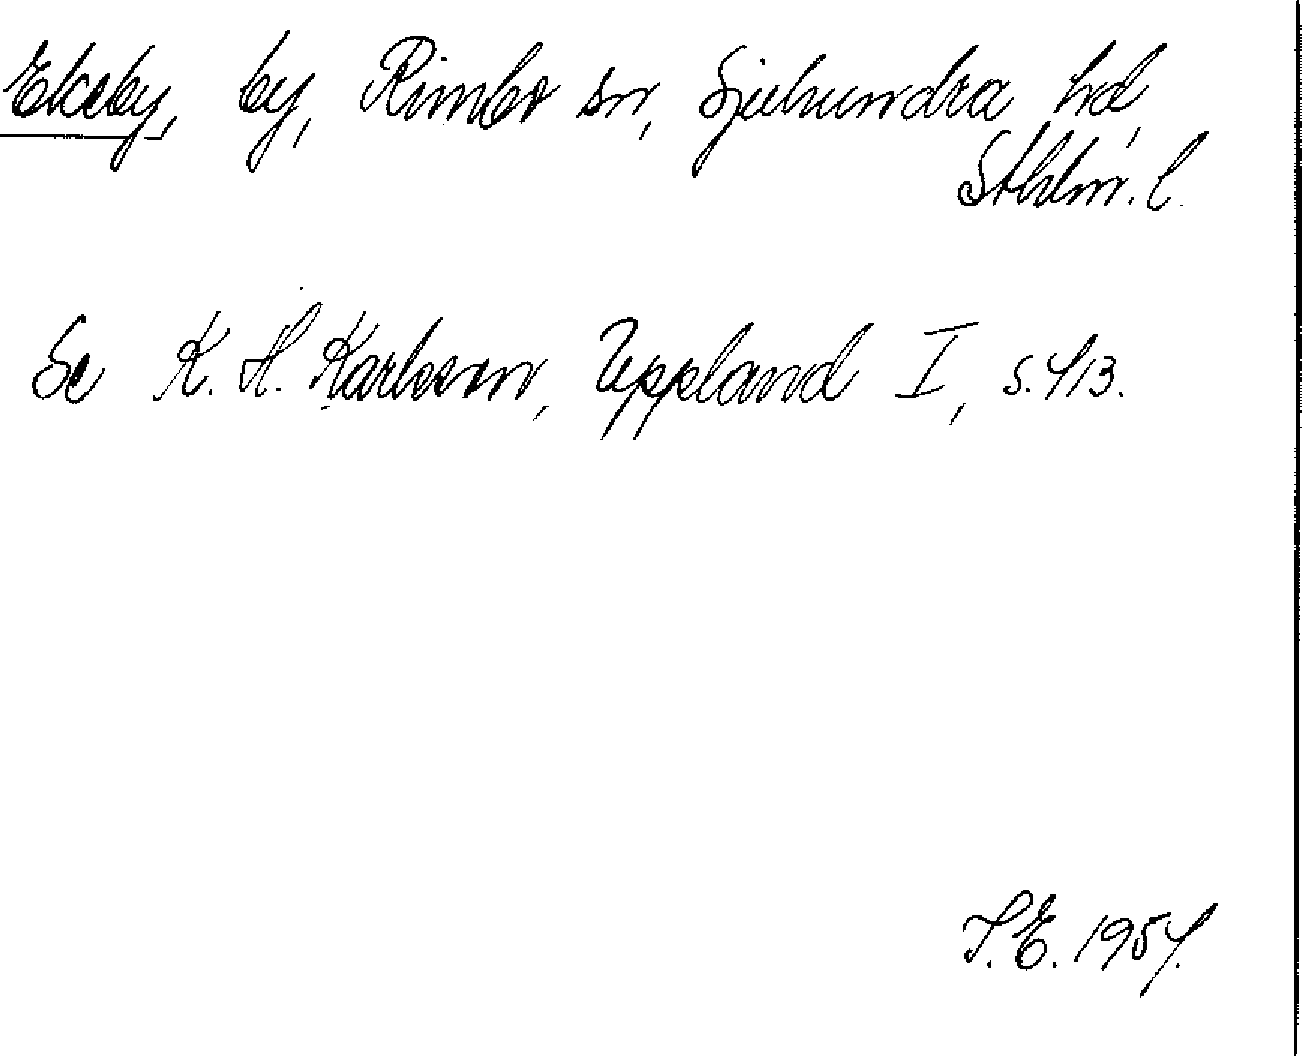 Ekeby, by, Rimbo sn, Sjuhundra hd,
Sthlm. l.
Se K. H. Karlsson, Uppland I, s. 413.
S. E. 1954.